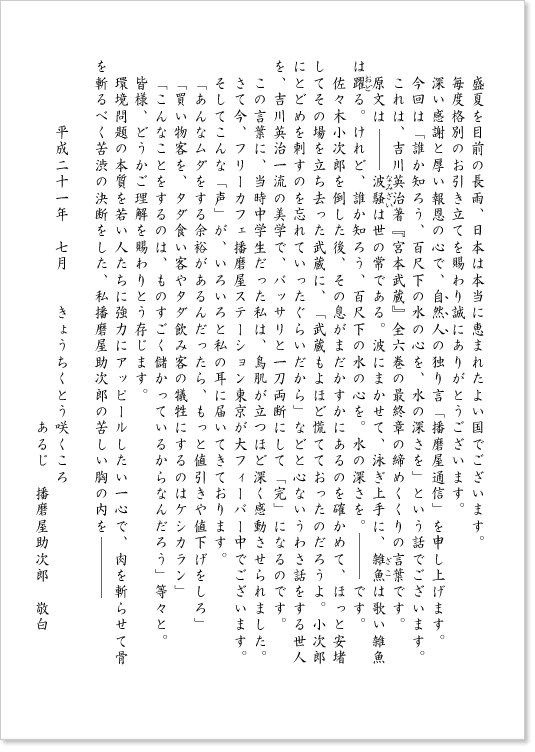 盛夏を目前の長雨、日本は本当に恵まれたよい国でございます。
毎度格別のお引き立てを賜わり誠にありがとうございます。
深い感謝と厚い報恩の心で、自然人の独り言「播磨屋通信」を申し上げます。
今回は「誰か知ろう、百尺下の水の心を、水の深さを」という話でございます。
これは、吉川英治著『宮本武蔵』全六巻の最終章の締めくくりの言葉です。
原文は――波騒は世の常である。波にまかせて、泳ぎ上手に、雑魚は歌い雑魚
は躍る。けれど、誰か知ろう、百尺下の水の心を。水の深さを。――です。
佐々木小次郎を倒した後、その息がまだかすかにあるのを確かめて、ほっと安堵
してその場を立ち去った武蔵に、「武蔵もよほど慌てておったのだろうよ。小次郎
にとどめを刺すのを忘れていったぐらいだから」などと心ないうわさ話をする世人
を、吉川英治一流の美学で、バッサリと一刀両断にして「完」になるのです。
この言葉に、当時中学生だった私は、鳥肌が立つほど深く感動させられました。
さて今、フリーカフェ播磨屋ステーション東京が大フィーバー中でございます。
そしてこんな「声」が、いろいろと私の耳に届いてきております。
「あんなムダをする余裕があるんだったら、もっと値引きや値下げをしろ」
「買い物客を、タダ食い客やタダ飲み客の犠牲にするのはケシカラン」
「こんなことをするのは、ものすごく儲かっているからなんだろう」等々と。
皆様、どうかご理解を賜わりとう存じます。
環境問題の本質を若い人たちに強力にアッピールしたい一心で、肉を斬らせて骨
を斬るべく苦渋の決断をした、私播磨屋助次郎の苦しい胸の内を――
平成二十一年 七月 きょうちくとう咲くころ
あるじ 播磨屋助次郎 敬白